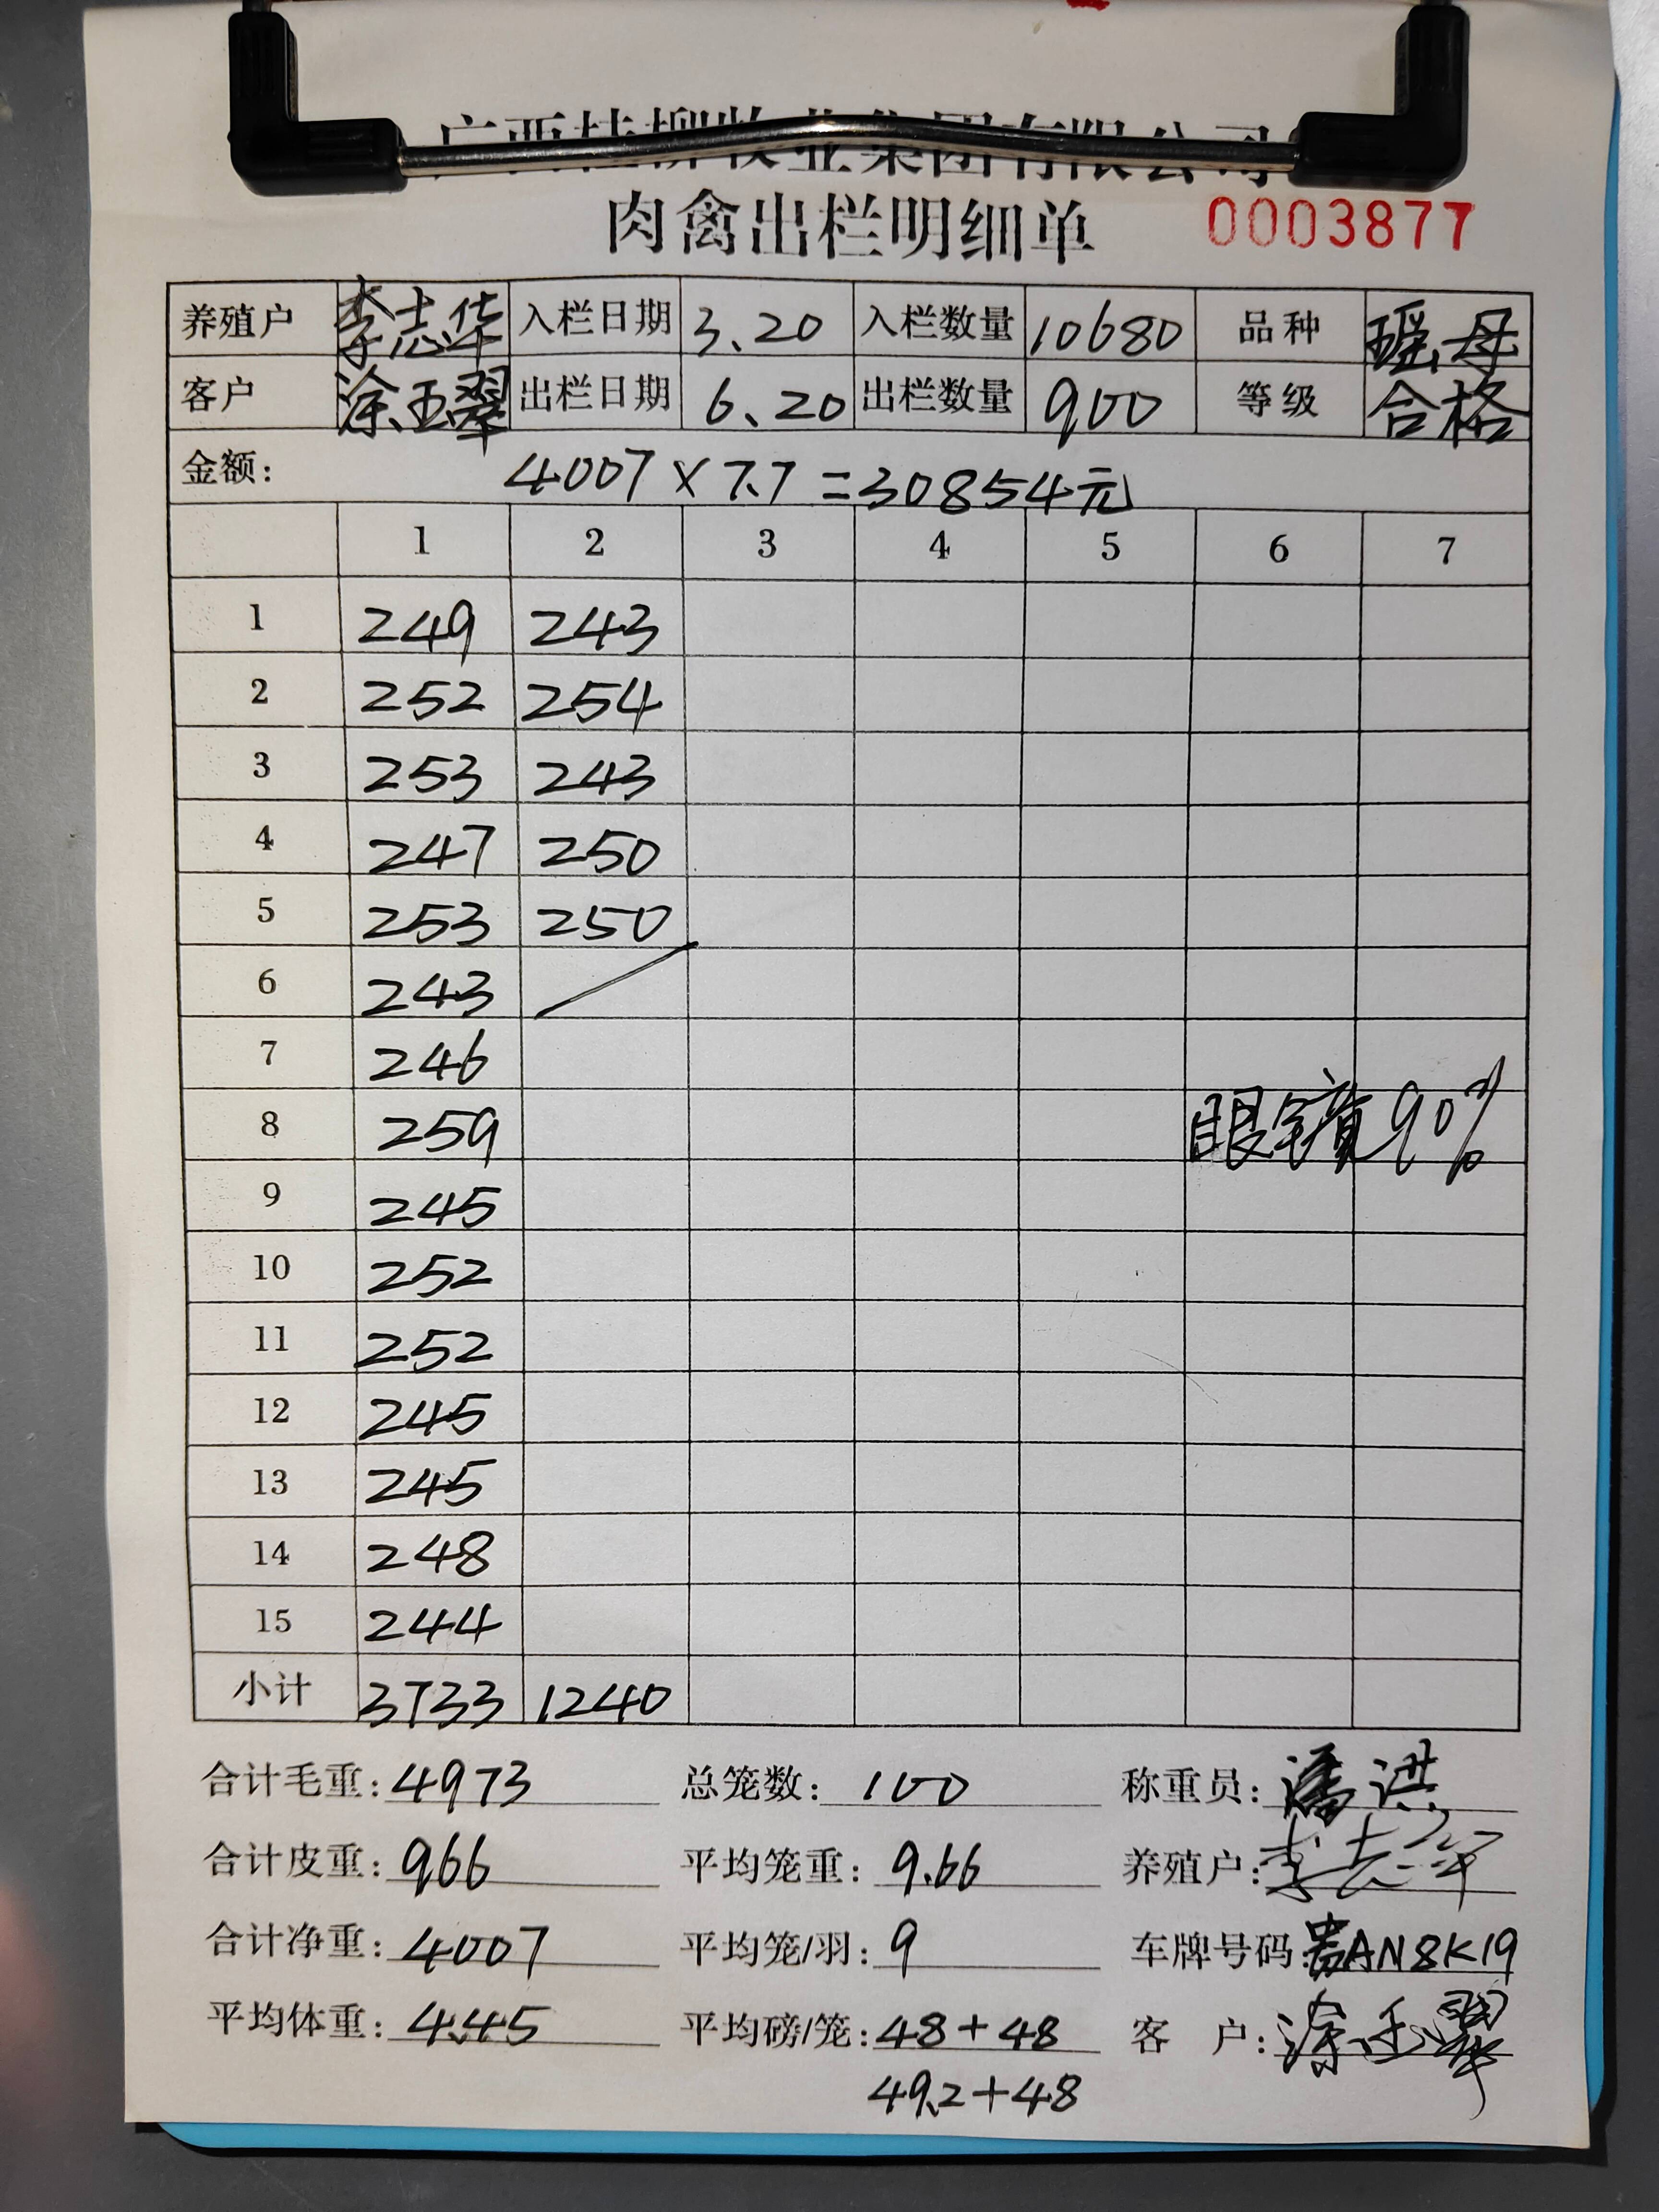 广西桂柳牧业集团有限公司
肉禽出栏明细单 0003877
养殖户 李志华 入栏日期 3.20 入栏数量 10680 品种 瑶母
客户 涂玉翠 出栏日期 6.20 出栏数量 900 等级 合格
金额: 4007×7.7=30854元
1 2 3 4 5 6 7
1 249 243
2 252 254
3 253 243
4 247 250
5 253 250
6 243
7 246
8 259 眼镜90%
9 245
10 252
11 252
12 245
13 245
14 248
15 244
小计 3733 1240
合计毛重: 4973 总笼数: 100 称重员: 潘洪
合计皮重: 966 平均笼重: 9.66 养殖户: 李志华
合计净重: 4007 平均笼/羽: 9 车牌号码: 贵AN8K19
平均体重: 4.45 平均磅/笼: 48+48 客 户: 涂玉翠
49.2+48